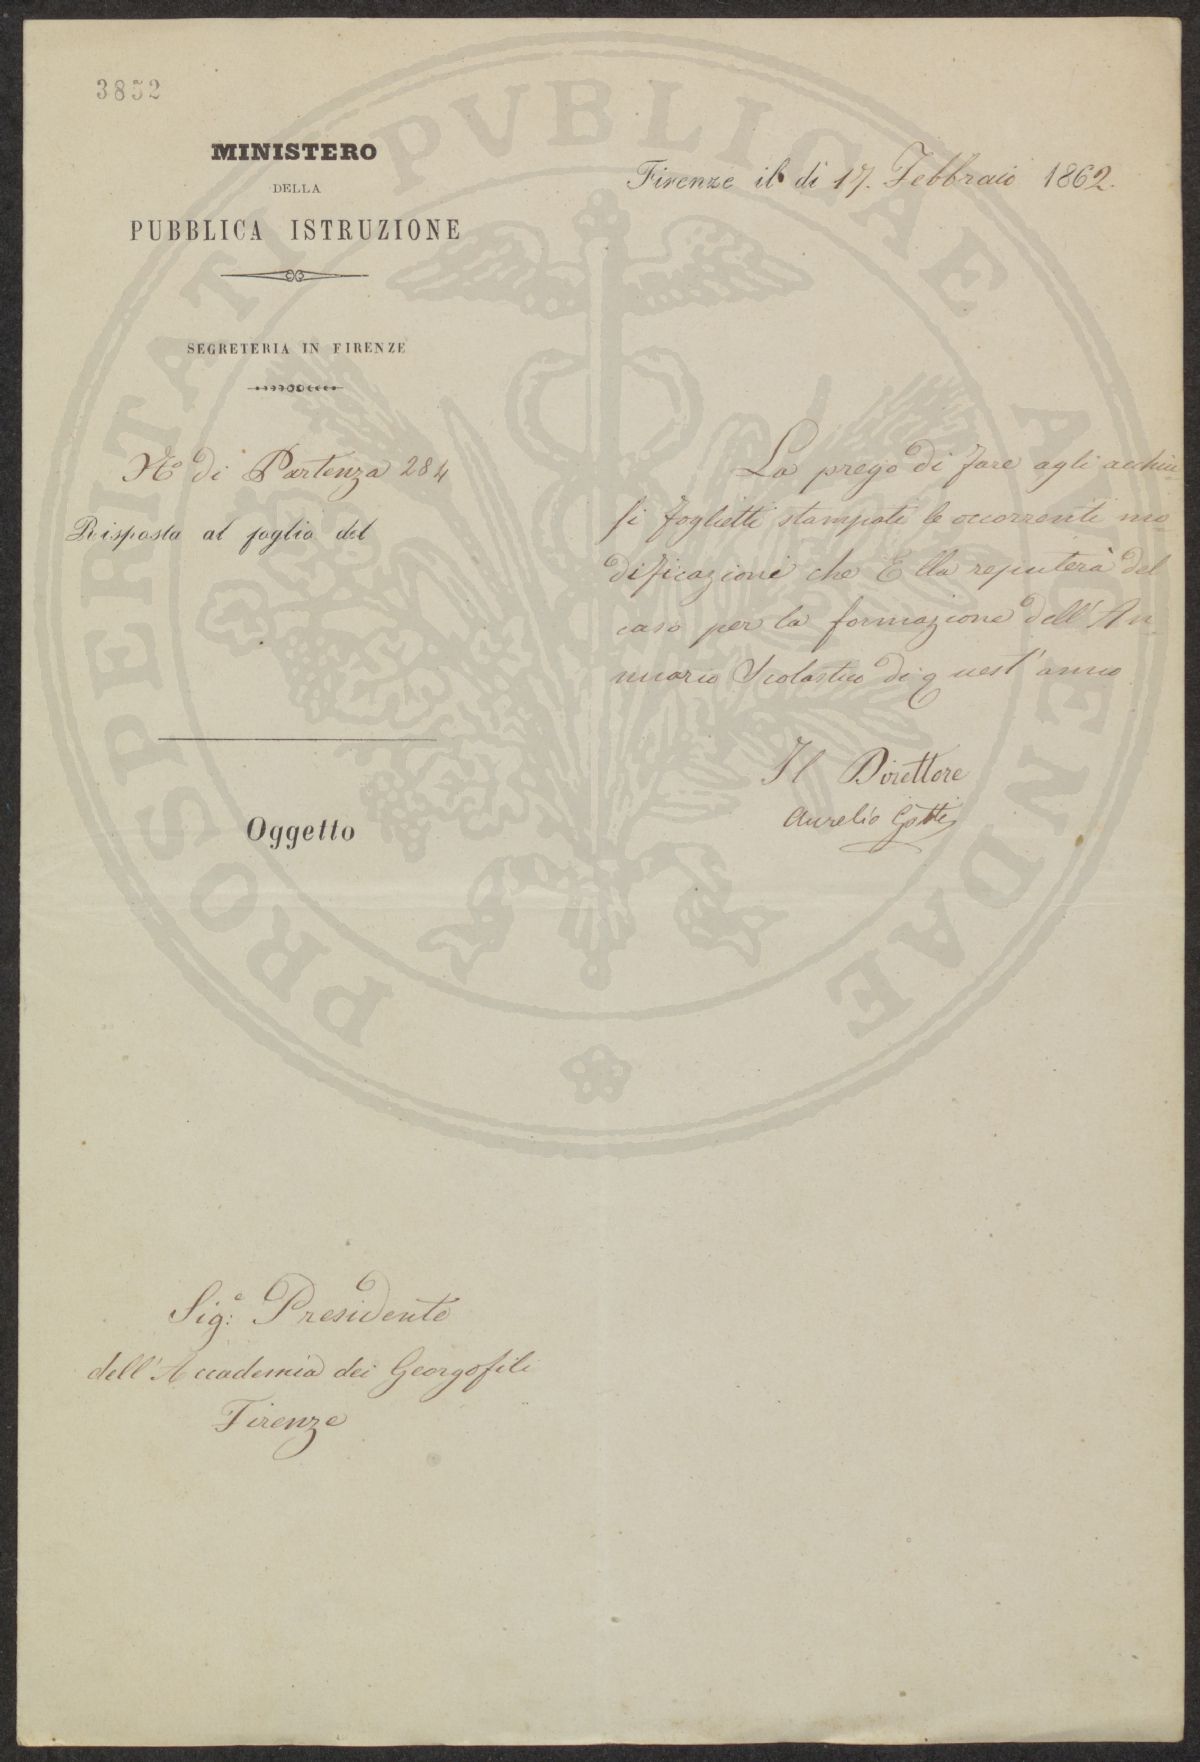 3852
MINISTERO
DELLA
PUBBLICA ISTRUZIONE
SEGRETERIA IN FIRENZE
N.º di Partenza 284
Risposta al foglio del
Oggetto
Firenze il dì 17. Febbraio 1862.
La prego di fare agli acchiu-
si foglietti stampati le occorrenti mo-
dificazioni che Ella reputerà del
caso per la formazione dell'An-
nuario Scolastico di quest'anno
Il Direttore
Aurelio Gotti
Sig.e Presidente
dell'Accademia dei Georgofili
Firenze
PROSPERITATI PVBLICAE AVGENDAE